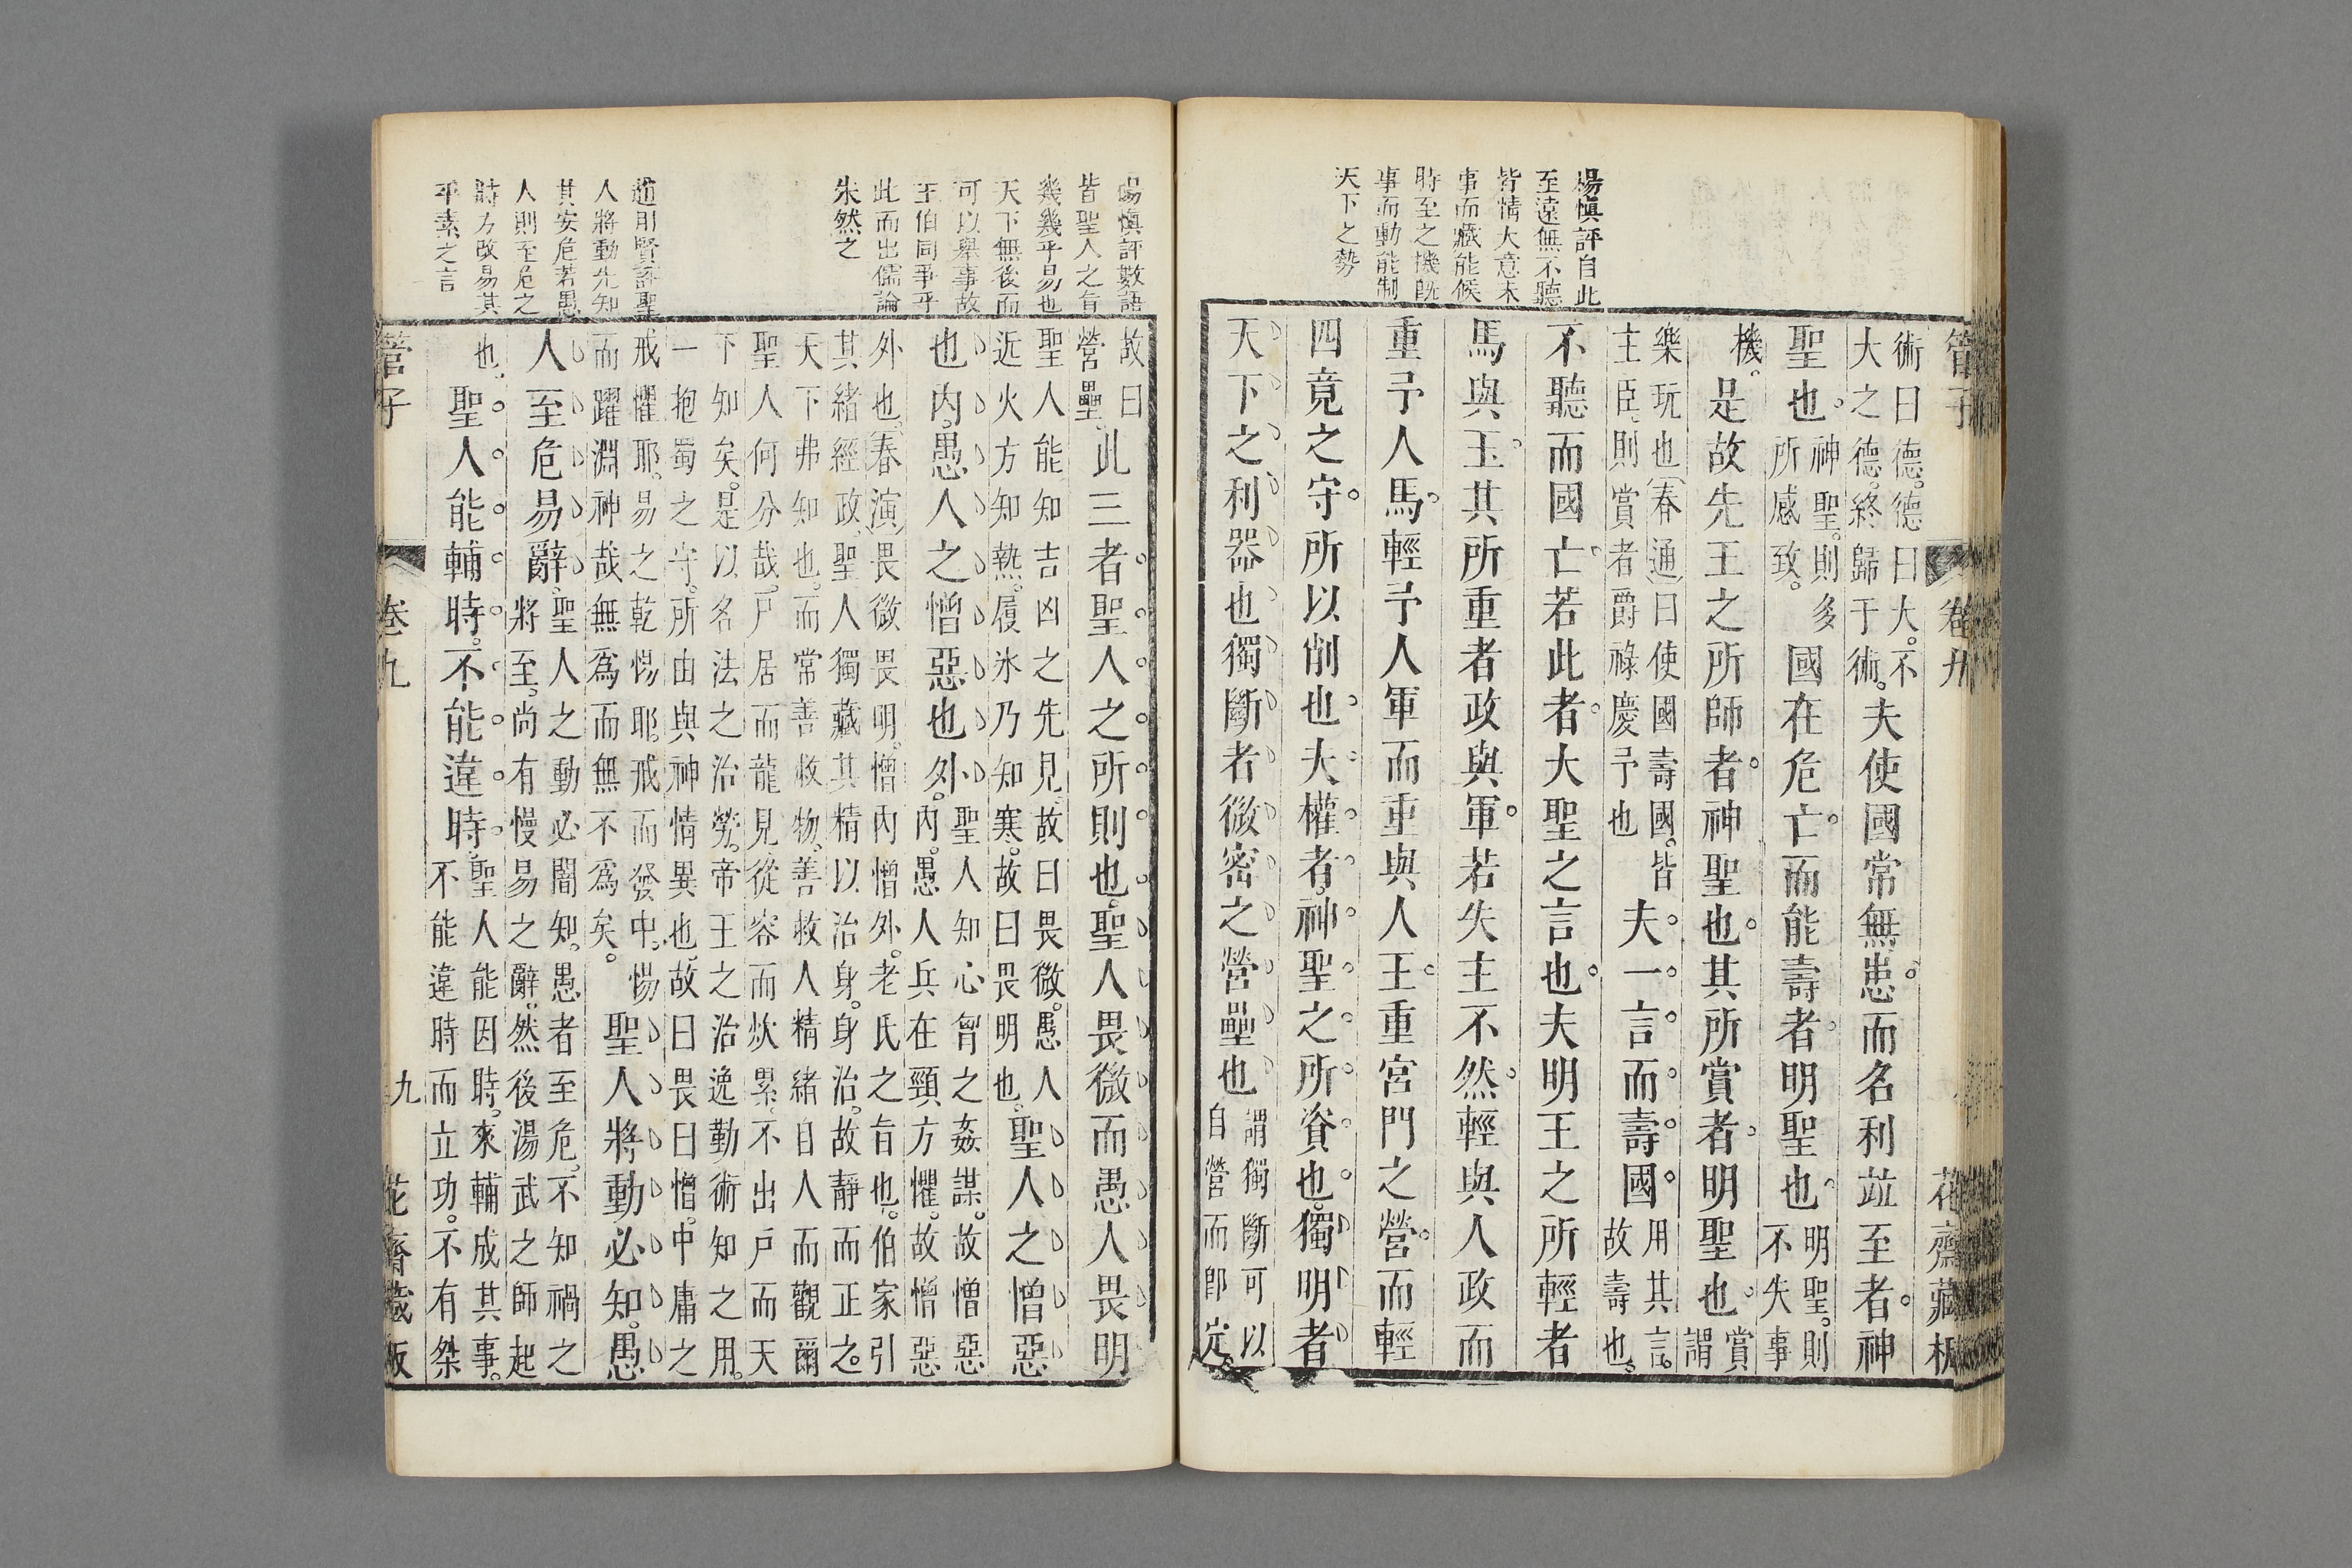 楊慎評自此
至遠無不聽
皆情大意未
事而藏能候
時至之機既
事而動能制
天下之勢
管子 卷九 花齋藏板
術曰德。德曰大。不
大之德。終歸于術。夫使國常無患。而名利竝至者。神
聖也。神聖。則多
所感致。國在危亡。而能壽者。明聖也。明聖。則
不失事
機。是故先王之所師者。神聖也。其所賞者。明聖也。賞
謂
樂玩也(春通)曰使國壽國。皆
主臣。則賞者爵祿慶予也夫一言而壽國。用其言。
故壽也。
不聽而國亡。若此者。大聖之言也。夫明王之所輕者
馬與玉。其所重者政與軍。若失主不然。輕與人政而
重予人馬。輕予人軍而重與人玉。重宮門之營。而輕
四竟之守。所以削也。夫權者。神聖之所資也。獨明者
天下之利器也獨斷者微密之營壘也謂獨斷可以
自營而即定。
楊慎評數語
皆聖人之旨
幾幾乎易也
天下無後而
可以舉事故
王伯同事乎
此而出儒論
未然之
趙用賢評聖
人將動先知
其安危若愚
人則至危之
時方改易其
平素之言
故曰
營壘。此三者聖人之所則也。聖人畏微而愚人畏明
聖人能知吉凶之先見。故曰畏微。愚人
近火方知熱。履氷乃知寒。故曰畏明也。聖人之憎惡
也內。愚人之憎惡也外。聖人知心胷之姦謀。故憎惡
內。愚人兵在頸方懼。故憎惡
外也。(春演)畏微畏明。憎內憎外。老氏之旨也。伯家引
其緒經政。聖人獨藏其精以治身。身治。故靜而正之。
天下弗知也。而常善救物。善救人精緒自人而觀爾
聖人何分哉。尸居而龍見。從容而炊累。不出戶而天
下知矣。是以名法之治勞。帝王之治逸勤術知之用。
一抱蜀之守。所由與神情異也。故曰畏曰憎。中庸之
戒懼耶。易之乾惕耶。戒而發中。惕
而躍淵神哉無爲而無不爲矣。聖人將動必知。愚
人至危易辭。聖人之動必闇知。愚者至危。不知禍之
將至。尚有慢易之辭。然後湯武之師起
也。聖人能輔時。不能違時。聖人能因時。來輔成其事。
不能違時而立功。不有桀
管子 卷九 九 花齋藏板